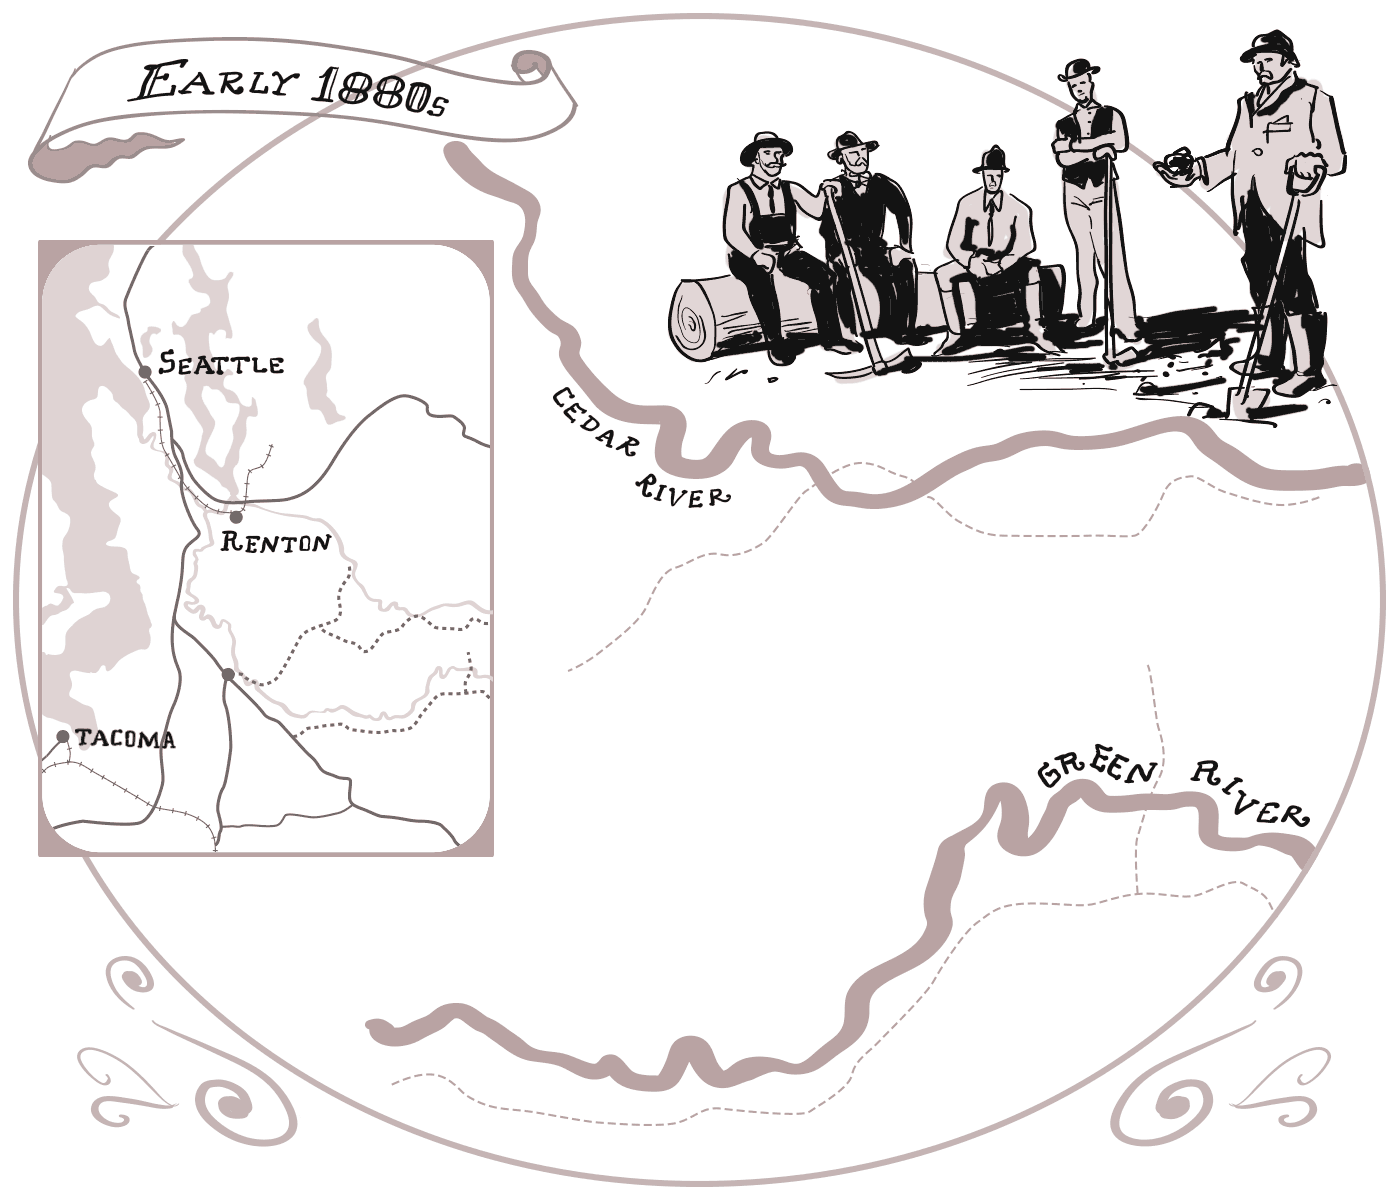 EARLY 1880s
SEATTLE
RENTON
TACOMA
CEDAR
RIVER
GREEN RIVER